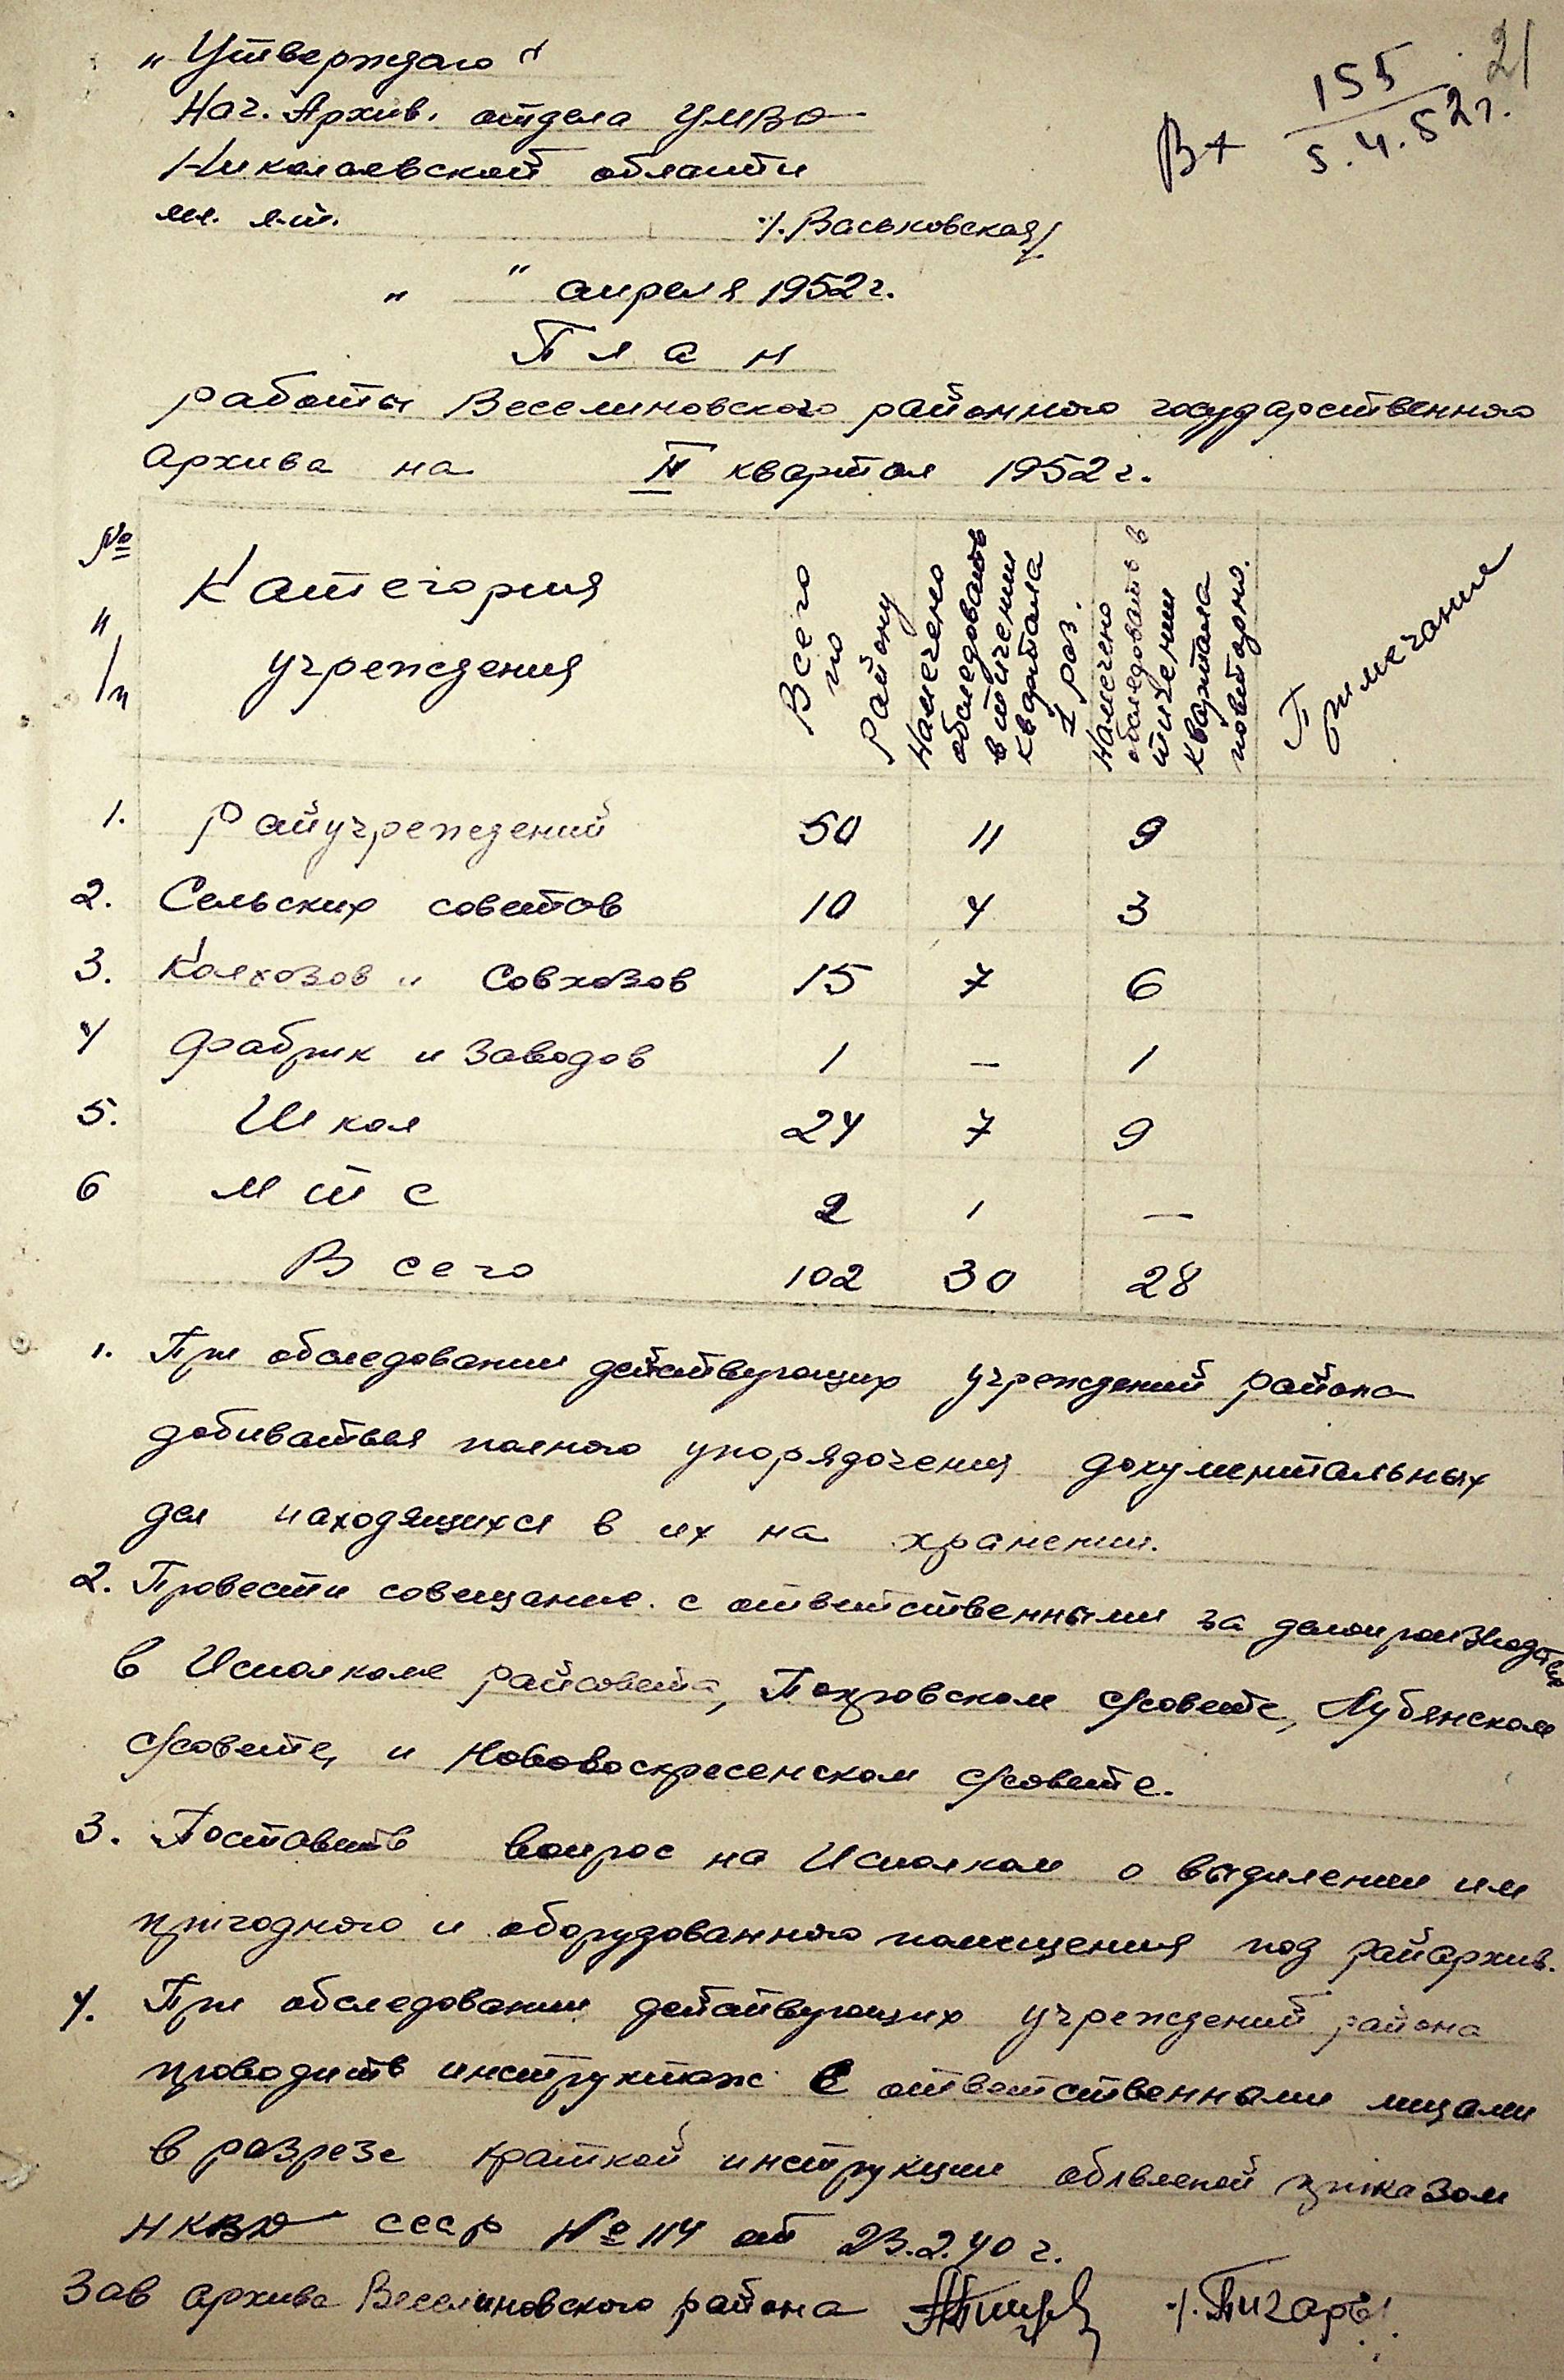 21
Вх 155
5.4.52 г.
„Утверждаю“
Нач. Архив. отдела УМВД
Николаевской области
мл. л-т. /. Васьковская/
„ “ апреля 1952 г.
План
работы Веселиновского районного государственного
архива на II квартал 1952 г.
№ п/п
Категория учреждения
Всего по району
Намечено обследовать в течении квартала 1 раз.
Намечено обследовать в течении квартала повторно.
Примечание
1. Райучреждений 50 11 9
2. Сельских советов 10 4 3
3. Колхозов и Совхозов 15 7 6
4 Фабрик и Заводов 1 — 1
5. Школ 24 7 9
6 М Т С 2 1 —
Всего 102 30 28
1. При обследовании действующих учреждений района
добиваться полного упорядочения документальных
дел находящихся в их на хранении.
2. Провести совещание с ответственными за делопроизводство
в Исполкоме райсовета, Покровском с/совете, Лубянском
с/совете, и Нововоскресенском с/совете.
3. Поставить вопрос на Исполком о выделении им
пригодного и оборудованного помещения под райархив.
4. При обследовании действующих учреждений района
проводить инструктаж с ответственными лицами
в разрезе краткой инструкции обявленой приказом
НКВД СССР № 114 от 23.2.40 г.
Зав архива Веселиновского района /. Пигарь/